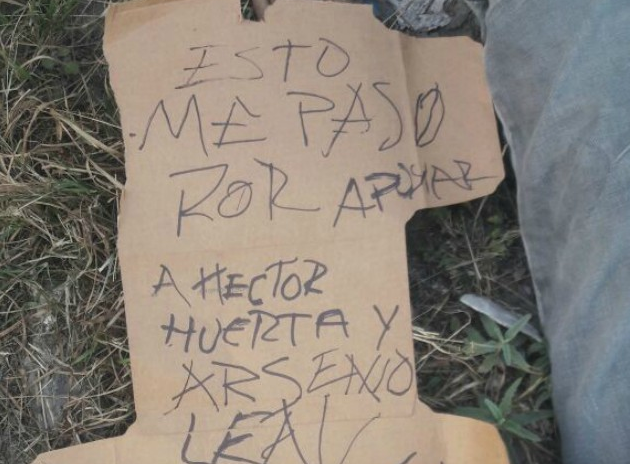 ESTO
ME PASO
POR APOYAR
A HECTOR
HUERTA Y
ARSENIO
LEAL